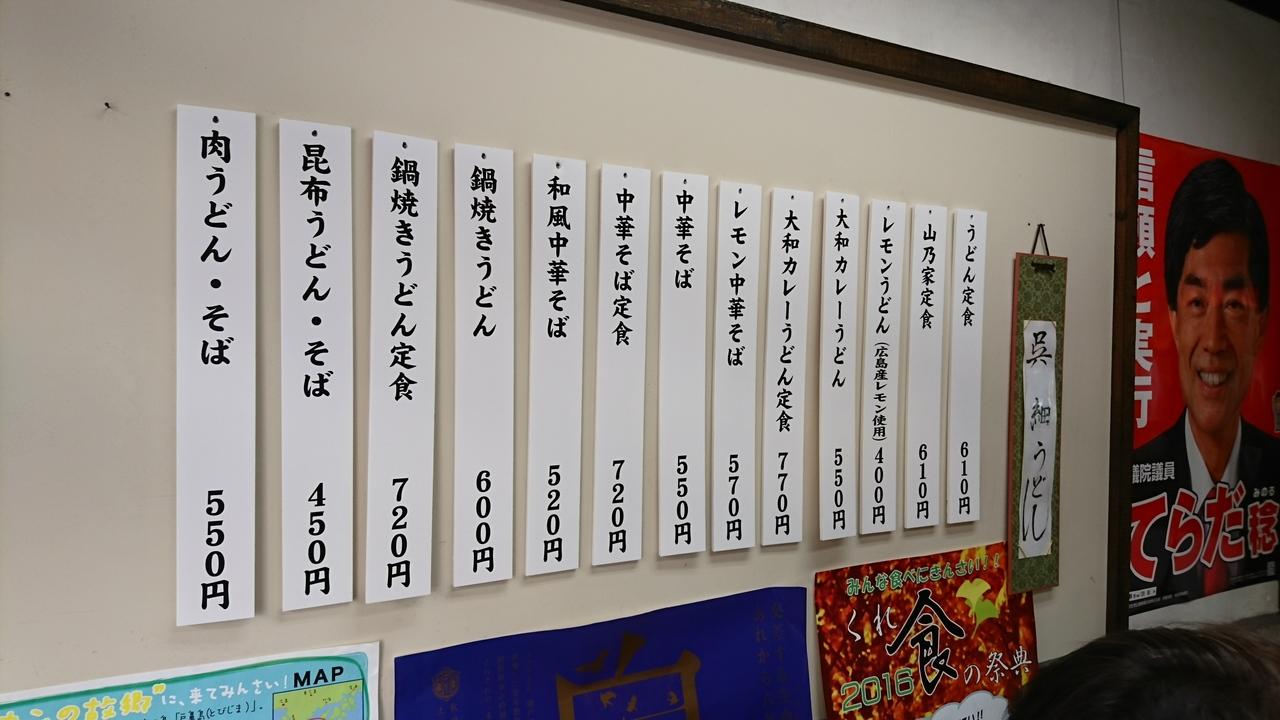 うどん定食 610円
山乃家定食 610円
レモンうどん(広島産レモン使用) 400円
大和カレーうどん 550円
大和カレーうどん定食 770円
レモン中華そば 570円
中華そば 550円
中華そば定食 720円
和風中華そば 520円
鍋焼きうどん 600円
鍋焼きうどん定食 720円
昆布うどん・そば 450円
肉うどん・そば 550円
呉細うどん
信頼と実行
議院議員
みのる
てらだ稔
みんな食べにきんさい!!
くれ食の祭典
2016
に、来てみんさい!
MAP